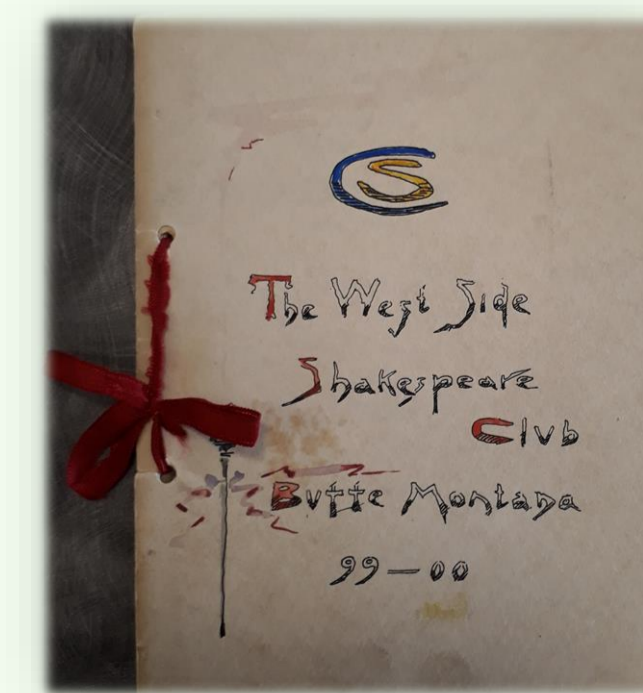 CS
The West Side
Shakespeare
Club
Butte Montana
99-00